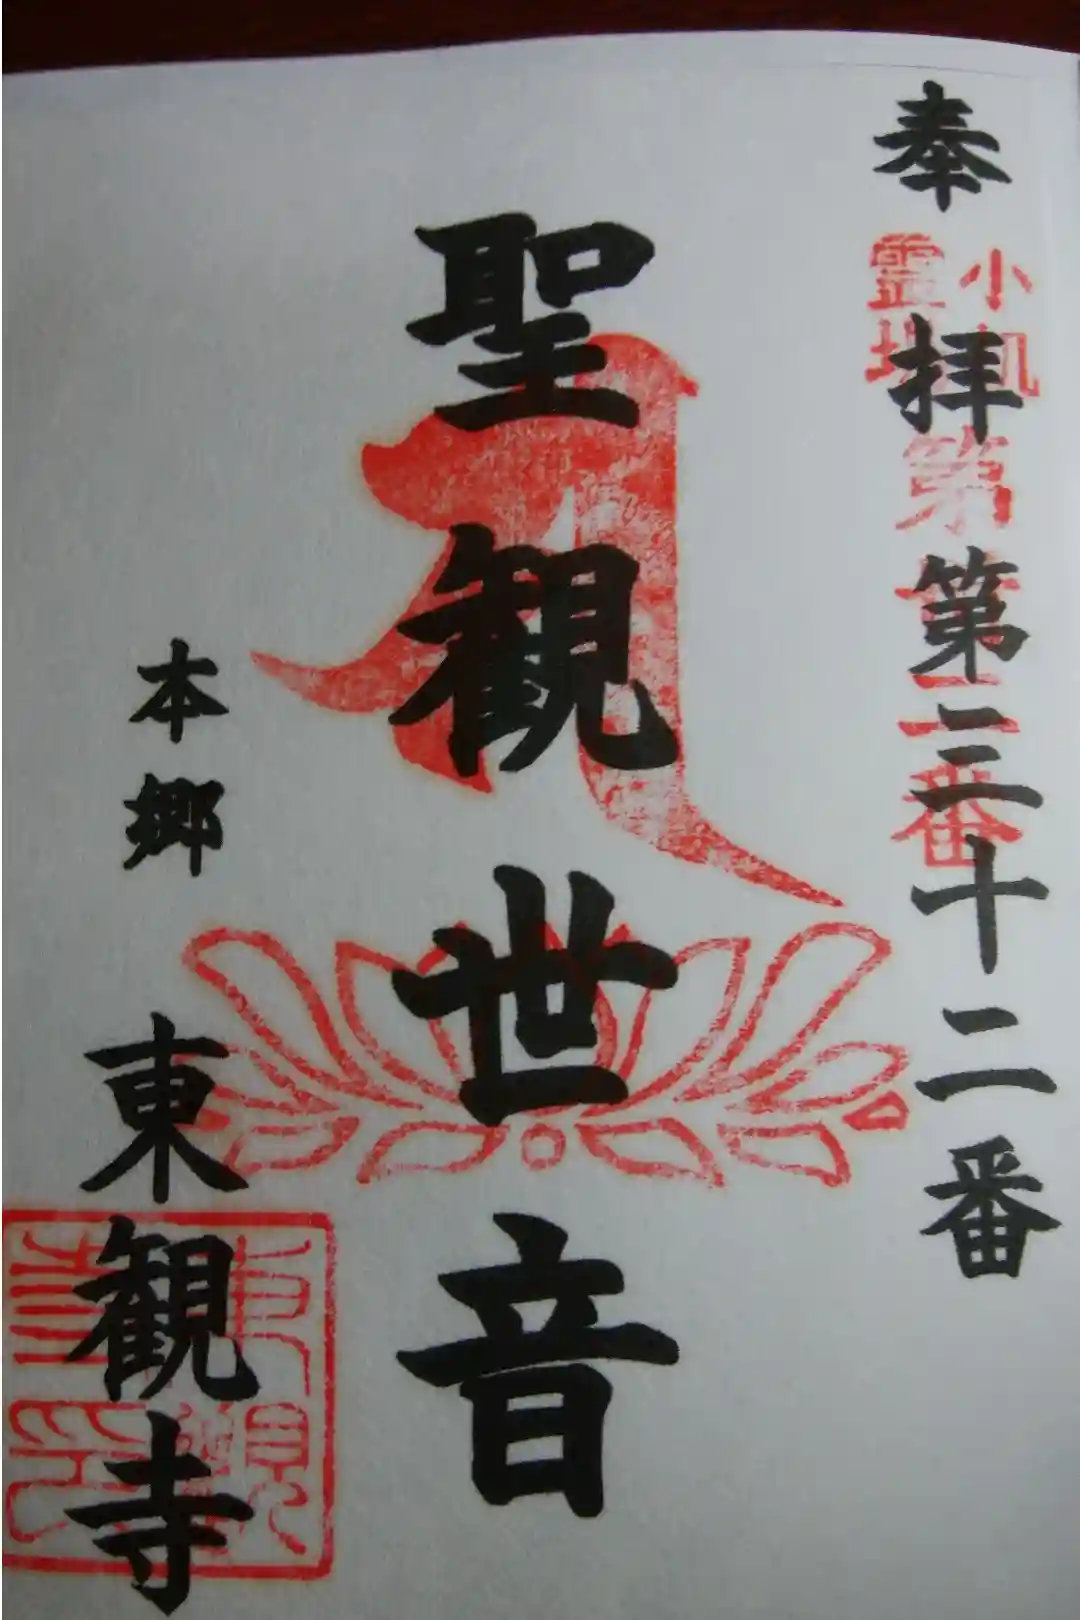 奉拝第三十二番
小机
霊場
第三十二番
聖観世音
本郷 東観寺